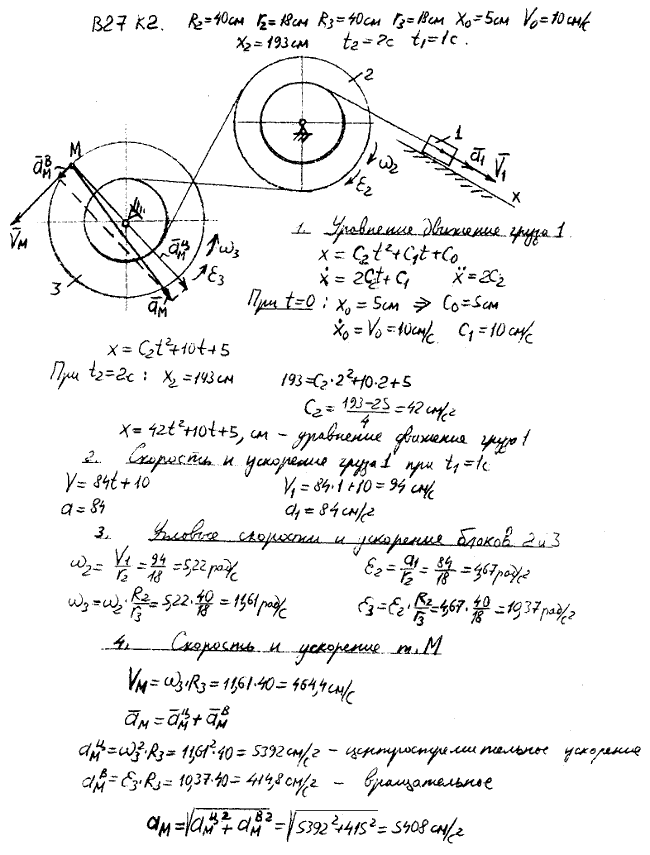 В27 К2. R₂=40см r₂=18см R₃=40см r₃=18см x₀=5см V₀=10см/с
x₂=193см t₂=2с t₁=1с.
2
1
ā₁
V̄₁
x
ω₂
ε₂
M
ā_M^В
V̄_M
ā_M^Ц
ω₃
ε₃
3
ā_M
1. Уравнение движение груза 1
x = C₂t²+C₁t+C₀
ẋ = 2C₂t+C₁ ẍ=2C₂
При t=0: x₀=5см ⇒ C₀=5см
ẋ₀=V₀=10см/с C₁=10см/с
x=C₂t²+10t+5
При t₂=2с: x₂=143см 193=C₂·2²+10·2+5
C₂=(193-25)/4=42см/с²
x=42t²+10t+5, см – уравнение движение груза 1
2. Скорость и ускорение груза 1 при t₁=1с
V=84t+10 V₁=84·1+10=94см/с
a=84 a₁=84см/с²
3. Угловые скорости и ускорения блоков 2 и 3
ω₂=V₁/r₂=94/18=5,22рад/с ε₂=a₁/r₂=84/18=4,67рад/с²
ω₃=ω₂·R₂/r₃=5,22·40/18=11,61рад/с ε₃=ε₂·R₂/r₃=4,67·40/18=10,37рад/с²
4. Скорость и ускорение т. М
V_M=ω₃·R₃=11,61·40=464,4см/с
ā_M=ā_M^Ц+ā_M^В
a_M^Ц=ω₃²·R₃=11,61²·40=5392см/с² – центростремительное ускорение
a_M^В=ε₃·R₃=10,37·40=414,8см/с² – вращательное
a_M=√(a_M^Ц²+a_M^В²)=√(5392²+415²)=5408см/с²